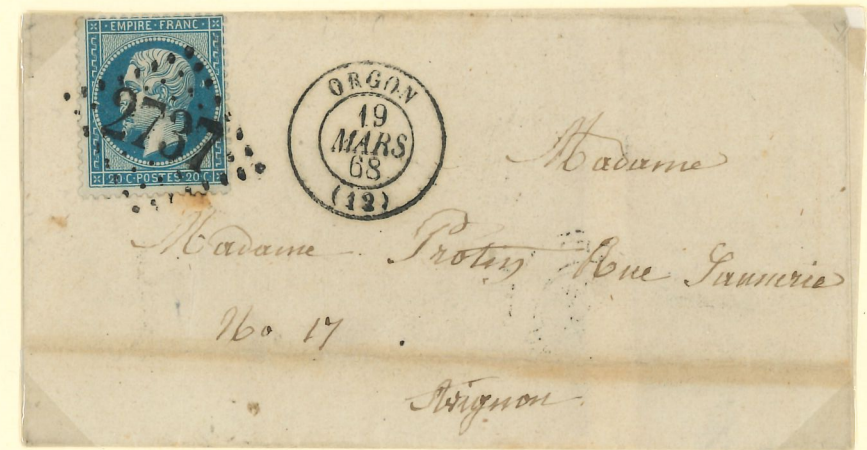 EMPIRE · FRANC ·
2737
20 C · POSTES · 20 C
ORGON
19
MARS
68
(12)
Madame
Madame Protin Rue Saunerie
No 17
Avignon